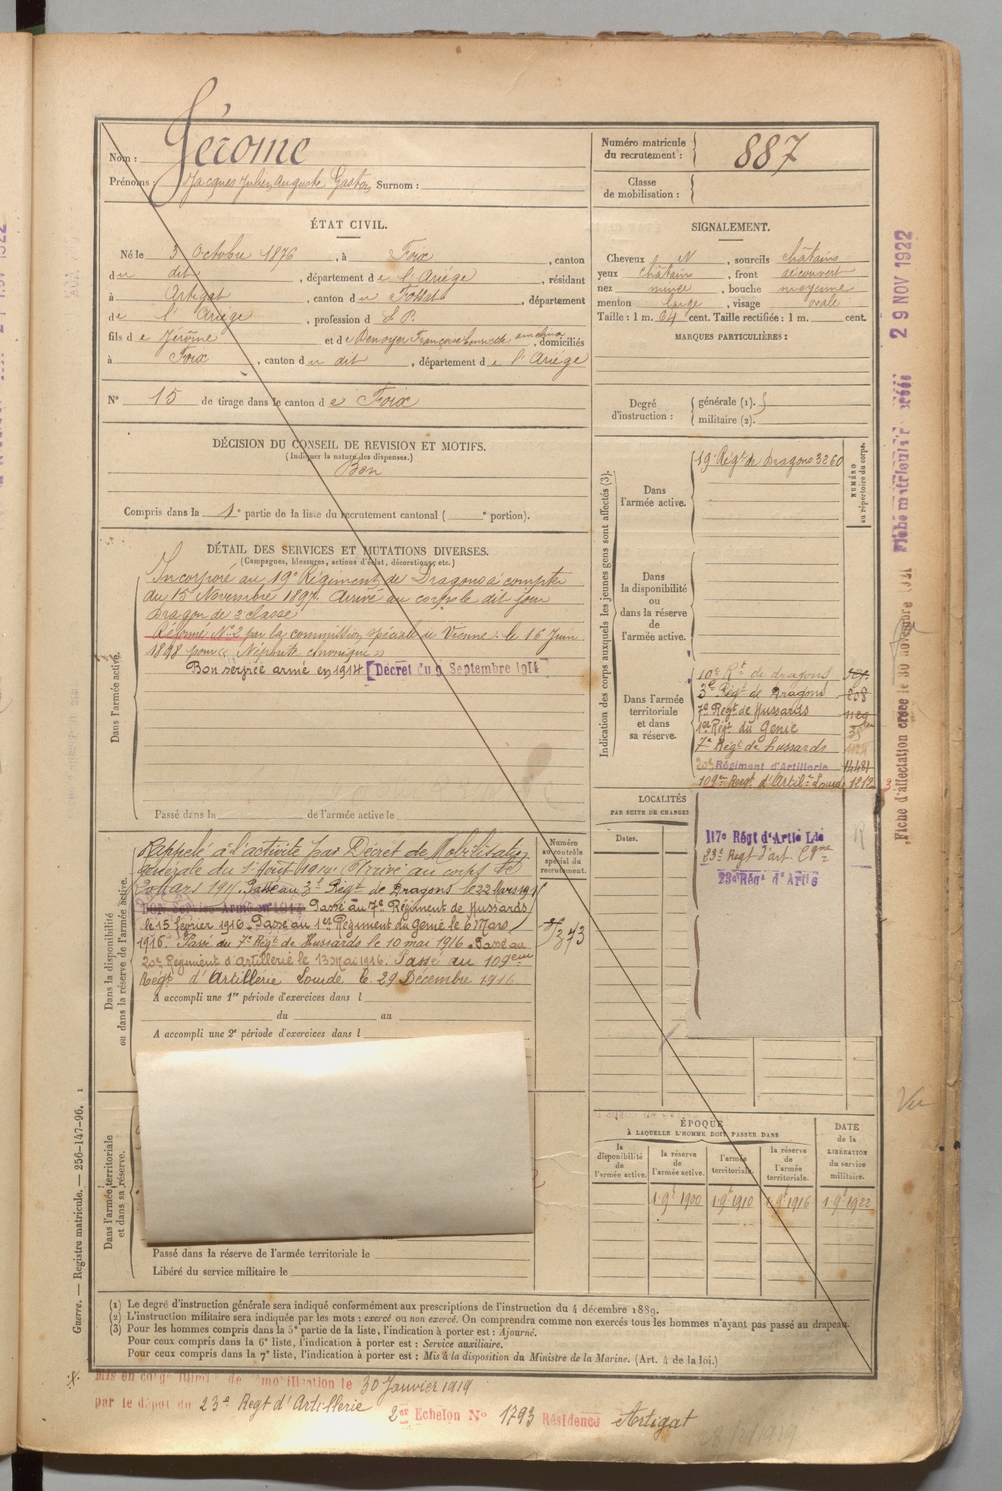 Nom : Jérome
Prénoms : Jacques Julien Auguste Gaston, Surnom :
Numéro matricule du recrutement : 887
Classe de mobilisation :
ÉTAT CIVIL.
Né le 3 Octobre 1876, à Foix, canton
du dit, département de l'Ariége, résidant
à Artigat, canton du Fossat, département
de l'Ariége, profession d S. P.
fils de Jérôme et de Denoyer Françoise, domiciliés
à Foix, canton du dit, département de l'Ariége
N° 15 de tirage dans le canton de Foix
SIGNALEMENT.
Cheveux N, sourcils châtains
yeux châtain, front découvert
nez mince, bouche moyenne
menton large, visage ovale
Taille : 1 m. 64 cent. Taille rectifiée : 1 m. cent.
MARQUES PARTICULIÈRES :
Degré d'instruction : générale (1).
militaire (2).
DÉCISION DU CONSEIL DE REVISION ET MOTIFS.
(Indiquer la nature des dispenses.)
Bon
Compris dans la 1e partie de la liste du recrutement cantonal ( e portion).
DÉTAIL DES SERVICES ET MUTATIONS DIVERSES.
(Campagnes, blessures, actions d'éclat, décorations, etc.)
Dans l'armée active.
Incorporé au 19e Régiment de Dragons à compter
du 15 Novembre 1897. Arrivé au corps le dit jour
Dragon de 2e classe
Réformé N°2 par la commission spéciale de Vienne le 16 Juin
1898 pour « Néphrite chronique »
Bon service armé en 1914 [Décret du 9 Septembre 1914
Passé dans la de l'armée active le
Dans la disponibilité ou dans la réserve de l'armée active.
Rappelé à l'activité par Décret de Mobilisation
générale du 1er Août 1914. Arrivé au corps le
20 Mars 191. Passé au 3e Régt de Dragons le 22 Mars 191
Bon Service Armé en 1914 Passé au 7e Régiment de Hussards
le 15 février 1916. Passé au 1er Régiment du Génie le 6 Mars
1916. Passé du 7e Régt de Hussards le 10 mai 1916. Passé au
20e Régiment d'artillerie le 13 Mai 1916. Passé au 109eme
Regt d'Artillerie Lourde le 29 Décembre 1916
A accompli une 1re période d'exercices dans l
du au
A accompli une 2e période d'exercices dans l
Numéro au contrôle spécial du recrutement.
373
Dans l'armée territoriale et dans sa réserve.
Passé dans la réserve de l'armée territoriale le
Libéré du service militaire le
Indication des corps auxquels les jeunes gens sont affectés (3).
NUMÉRO au répertoire du corps.
Dans l'armée active.
19e Régt de Dragons 3260
Dans la disponibilité ou dans la réserve de l'armée active.
Dans l'armée territoriale et dans sa réserve.
10e Rt de dragons
3e Régt de Dragons 208
7e Régt de Hussards 1129
1er Régt du Génie
7e Régt de hussards
20e Régiment d'Artillerie 14481
109e Regt d'Artilie Lourde 1812
LOCALITÉS
PAR SUITE DE CHANGE
Dates.
117e Régt d'Artie Lde
23e Regt d'art. Cgne
23e Régt d'Artie
ÉPOQUE
À LAQUELLE L'HOMME DOIT PASSER DANS
la disponibilité de l'armée active.
la réserve de l'armée active.
l'armée territoriale.
la réserve de l'armée territoriale.
DATE de la LIBÉRATION du service militaire.
1.9e 1900 1.9e 1910 1.9e 1916 1.9e 1922
(1) Le degré d'instruction générale sera indiqué conformément aux prescriptions de l'instruction du 4 décembre 1889.
(2) L'instruction militaire sera indiquée par les mots : exercé ou non exercé. On comprendra comme non exercés tous les hommes n'ayant pas passé au drapeau.
(3) Pour les hommes compris dans la 5e partie de la liste, l'indication à porter est : Ajourné.
Pour ceux compris dans la 6e liste, l'indication à porter est : Service auxiliaire.
Pour ceux compris dans la 7e liste, l'indication à porter est : Mis à la disposition du Ministre de la Marine. (Art. 4 de la loi.)
Mis en congé illimité de démobilisation le 30 Janvier 1919
par le dépôt du 23e Regt d'Artillerie
2er Echelon N° 1793 Résidence Artigat
28/2/1919
Guerre. — Registre matricule. — 256-147-96.
Fiche d'affectation créée le 30 novembre
Fiche matriculaire créée
29 NOV 1922
Vu